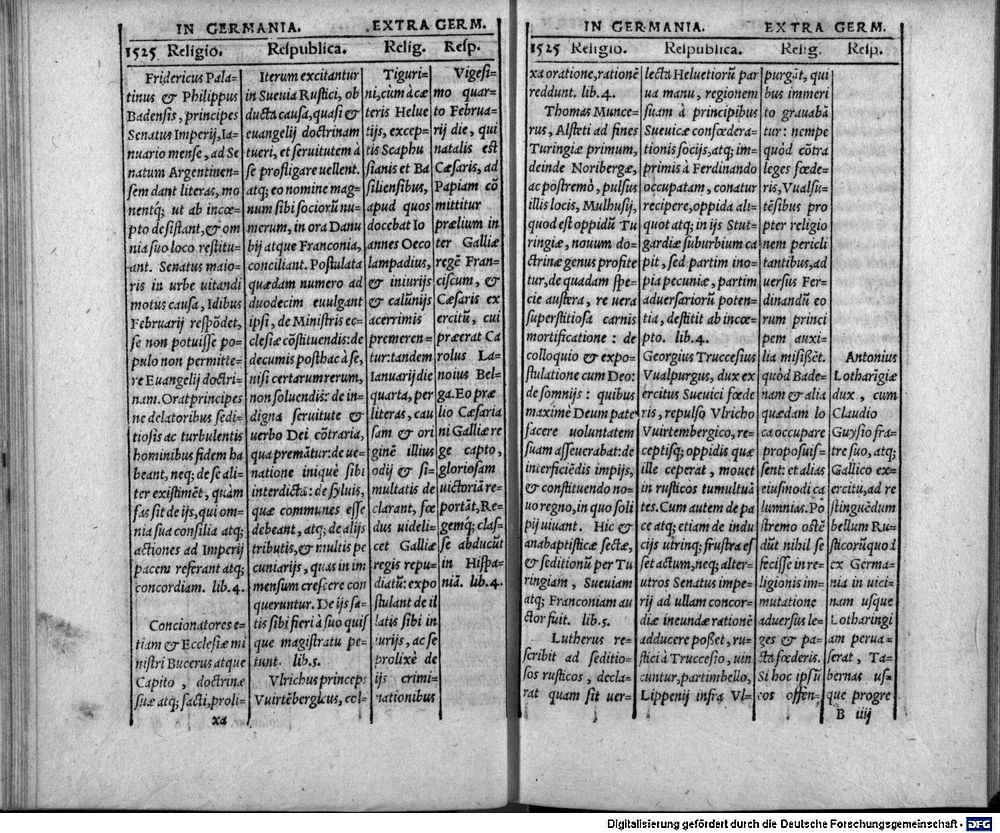 IN GERMANIA.
EXTRA GERM.
1525 Religio.
Respublica.
Relig.
Resp.
Fridericus Pala-
tinus & Philippus
Badensis, principes
Senatus Imperij, Ia-
nuario mense, ad Se
natum Argentinen-
sem dant literas, mo
nentq́; ut ab incœ-
pto desistant, & om
nia suo loco restitu-
ant. Senatus maio-
ris in urbe uitandi
motus causa, Idibus
Februarij respõdet,
se non potuisse po-
pulo non permitte-
re Euangelij doctri-
nam. Orat principes
ne delatoribus sedi-
tiosis ac turbulentis
hominibus fidem ha
beant, neq; de se ali-
ter existimẽt, quàm
fas sit de ijs, qui om-
nia sua consilia atq;
actiones ad Imperij
pacem referant atq;
concordiam. lib. 4.
Concionatores e-
tiam & Ecclesiæ mi
nistri Bucerus atque
Capito, doctrinæ
suæ atq; facti, proli-
xa
Iterum excitantur
in Sueuia Rustici, ob
ducta causa, quasi &
euangelij doctrinam
tueri, et seruitutem à
se profligare uellent.
atq; eo nomine mag-
num sibi sociorũ nu-
merum, in ora Danu
bij atque Franconia,
conciliant. Postulata
quædam numero ad
duodecim euulgant
ipsi, de Ministris ec-
clesiæ cõstituendis: de
decumis posthac à se,
nisi certarum rerum,
non soluendis: de in-
digna seruitute &
uerbo Dei cõtraria,
qua premãtur: de ue-
natione iniquè sibi
interdicta: de syluis,
quæ communes esse
debeant, atq; de alijs
tributis, & multis pe
cuniarijs, quas in im
mensum crescere con
queruntur. De ijs sa-
tis sibi fieri à suo quis
que magistratu pe-
tunt. lib. 5.
Vlrichus princeps
Vuirtẽbergicus, col-
Tiguri-
ni, cum à cæ
teris Helue
tijs, excep-
tis Scaphu
sianis et Ba
siliensibus,
apud quos
docebat Io
annes Oeco
lampadius,
& iniurijs
& calũnijs
acerrimis
premeren-
tur: tandem
Ianuarij die
quarta, per
literas, cau
sam & ori
ginẽ illius
odij & si-
multatis de
clarant, fœ
dus uideli-
cet Galliæ
regis repu-
diatũ: expo
stulant de il
latis sibi in
iurijs, ac se
prolixè de
ijs crimi-
nationibus
Vigesi-
mo quar-
to Februa-
rij die, qui
natalis est
Cæsaris, ad
Papiam cõ
mittitur
prælium in
ter Galliæ
regẽ Fran-
ciscum, &
Cæsaris ex
ercitũ, cui
præerat Ca
rolus La-
noius Bel-
ga. Eo præ
lio Cæsaria
ni Galliæ re
ge capto,
gloriosam
uictoriã re-
portãt, Re-
gemq́; clas-
se abducũt
in Hispa-
niã. lib. 4.
IN GERMANIA.
EXTRA GERM.
1525 Religio.
Respublica.
Relig.
Resp.
xa oratione, rationẽ
reddunt. lib. 4.
Thomas Munce-
rus, Alsteti ad fines
Turingiæ primum,
deinde Noribergæ,
ac postremò, pulsus
illis locis, Mulhusij,
quod est oppidũ Tu
ringiæ, nouum do-
ctrinæ genus profite
tur, de quadam spe-
cie austera, re uera
superstitiosa carnis
mortificatione: de
colloquio & expo-
stulatione cum Deo:
de somnijs: quibus
maximè Deum pate
facere uoluntatem
suam asseuerabat: de
interficiẽdis impijs,
& constituendo no-
uo regno, in quo soli
pij uiuant. Hic &
anabaptisticæ sectæ,
& seditionũ per Tu
ringiam, Sueuiam
atq; Franconiam au
ctor fuit. lib. 5.
Lutherus re-
scribit ad seditio-
sos rusticos, decla-
rat quam sit uer-
lecta Heluetiorũ par
ua manu, regionem
suam à principibus
Sueuicæ confœdera-
tionis socijs, atq; im-
primis à Ferdinando
occupatam, conatur
recipere, oppida ali-
quot atq; in ijs Stut-
gardiæ suburbium ca
pit, sed partim ino-
pia pecuniæ, partim
aduersariorũ poten-
tia, destitit ab incœ-
pto. lib. 4.
Georgius Truccesius
Vualpurgus, dux ex
ercitus Sueuici fœde
ris, repulso Vlricho
Vuirtembergico, re-
ceptisq́; oppidis quæ
ille ceperat, mouet
in rusticos tumultuã
tes. Cum autem de pa
ce atq; etiam de indu
cijs utrinq; frustra es
set actum, neq; alter-
utros Senatus impe-
rij ad ullam concor-
diæ ineundæ rationẽ
adducere posset, ru-
stici à Truccesio, uin
cuntur, partim bello,
Lippenij infra Vl-
purgãt, qui
bus immeri
to grauabã
tur: nempe
quòd cõtra
leges fœde-
ris, Vualsu-
tẽsibus pro
pter religio
nem pericli
tantibus, ad
uersus Fer-
dinandũ eo
rum princi
pem auxi-
lia misissẽt.
quòd Bade-
nam & alia
quædam lo
ca occupare
proposuis-
sent: et alias
eiusmodi ca
lumnias. Po
stremo ostẽ
dũt nihil se
fecisse in re-
ligionis im-
mutatione
aduersus le-
ges & pa-
cta fœderis.
Si hoc ipsũ
eos offen-
Antonius
Lotharĩgiæ
dux, cum
Claudio
Guysio fra-
tre suo, atq;
Gallico ex-
ercitu, ad re
stinguẽdum
bellum Ru-
sticorũ quo d
ex Germa-
nia in uici-
nam usque
Lotharingi
am perua-
serat, Ta-
bernas us-
que progre
B iiij
Digitalisierung gefördert durch die Deutsche Forschungsgemeinschaft - DFG